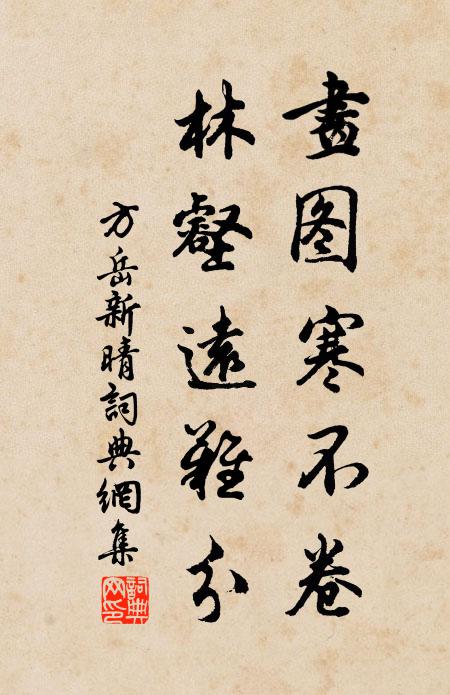 畫图寒不卷
林壑遠難分
方岳新晴詞典網集
詞典
网印